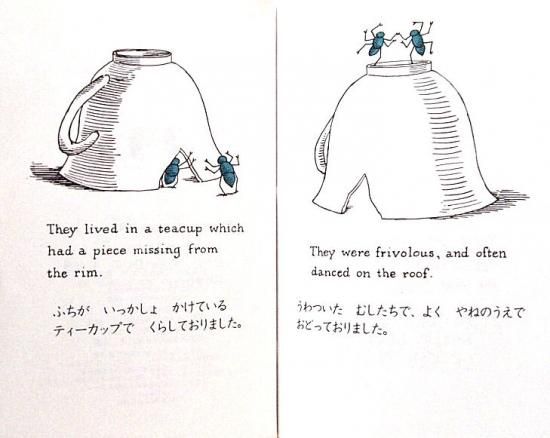 They lived in a teacup which
had a piece missing from
the rim.
ふちが　いっかしょ　かけている
ティーカップで　くらしておりました。
They were frivolous, and often
danced on the roof.
うわついた　むしたちで、よく　やねのうえで
おどっておりました。